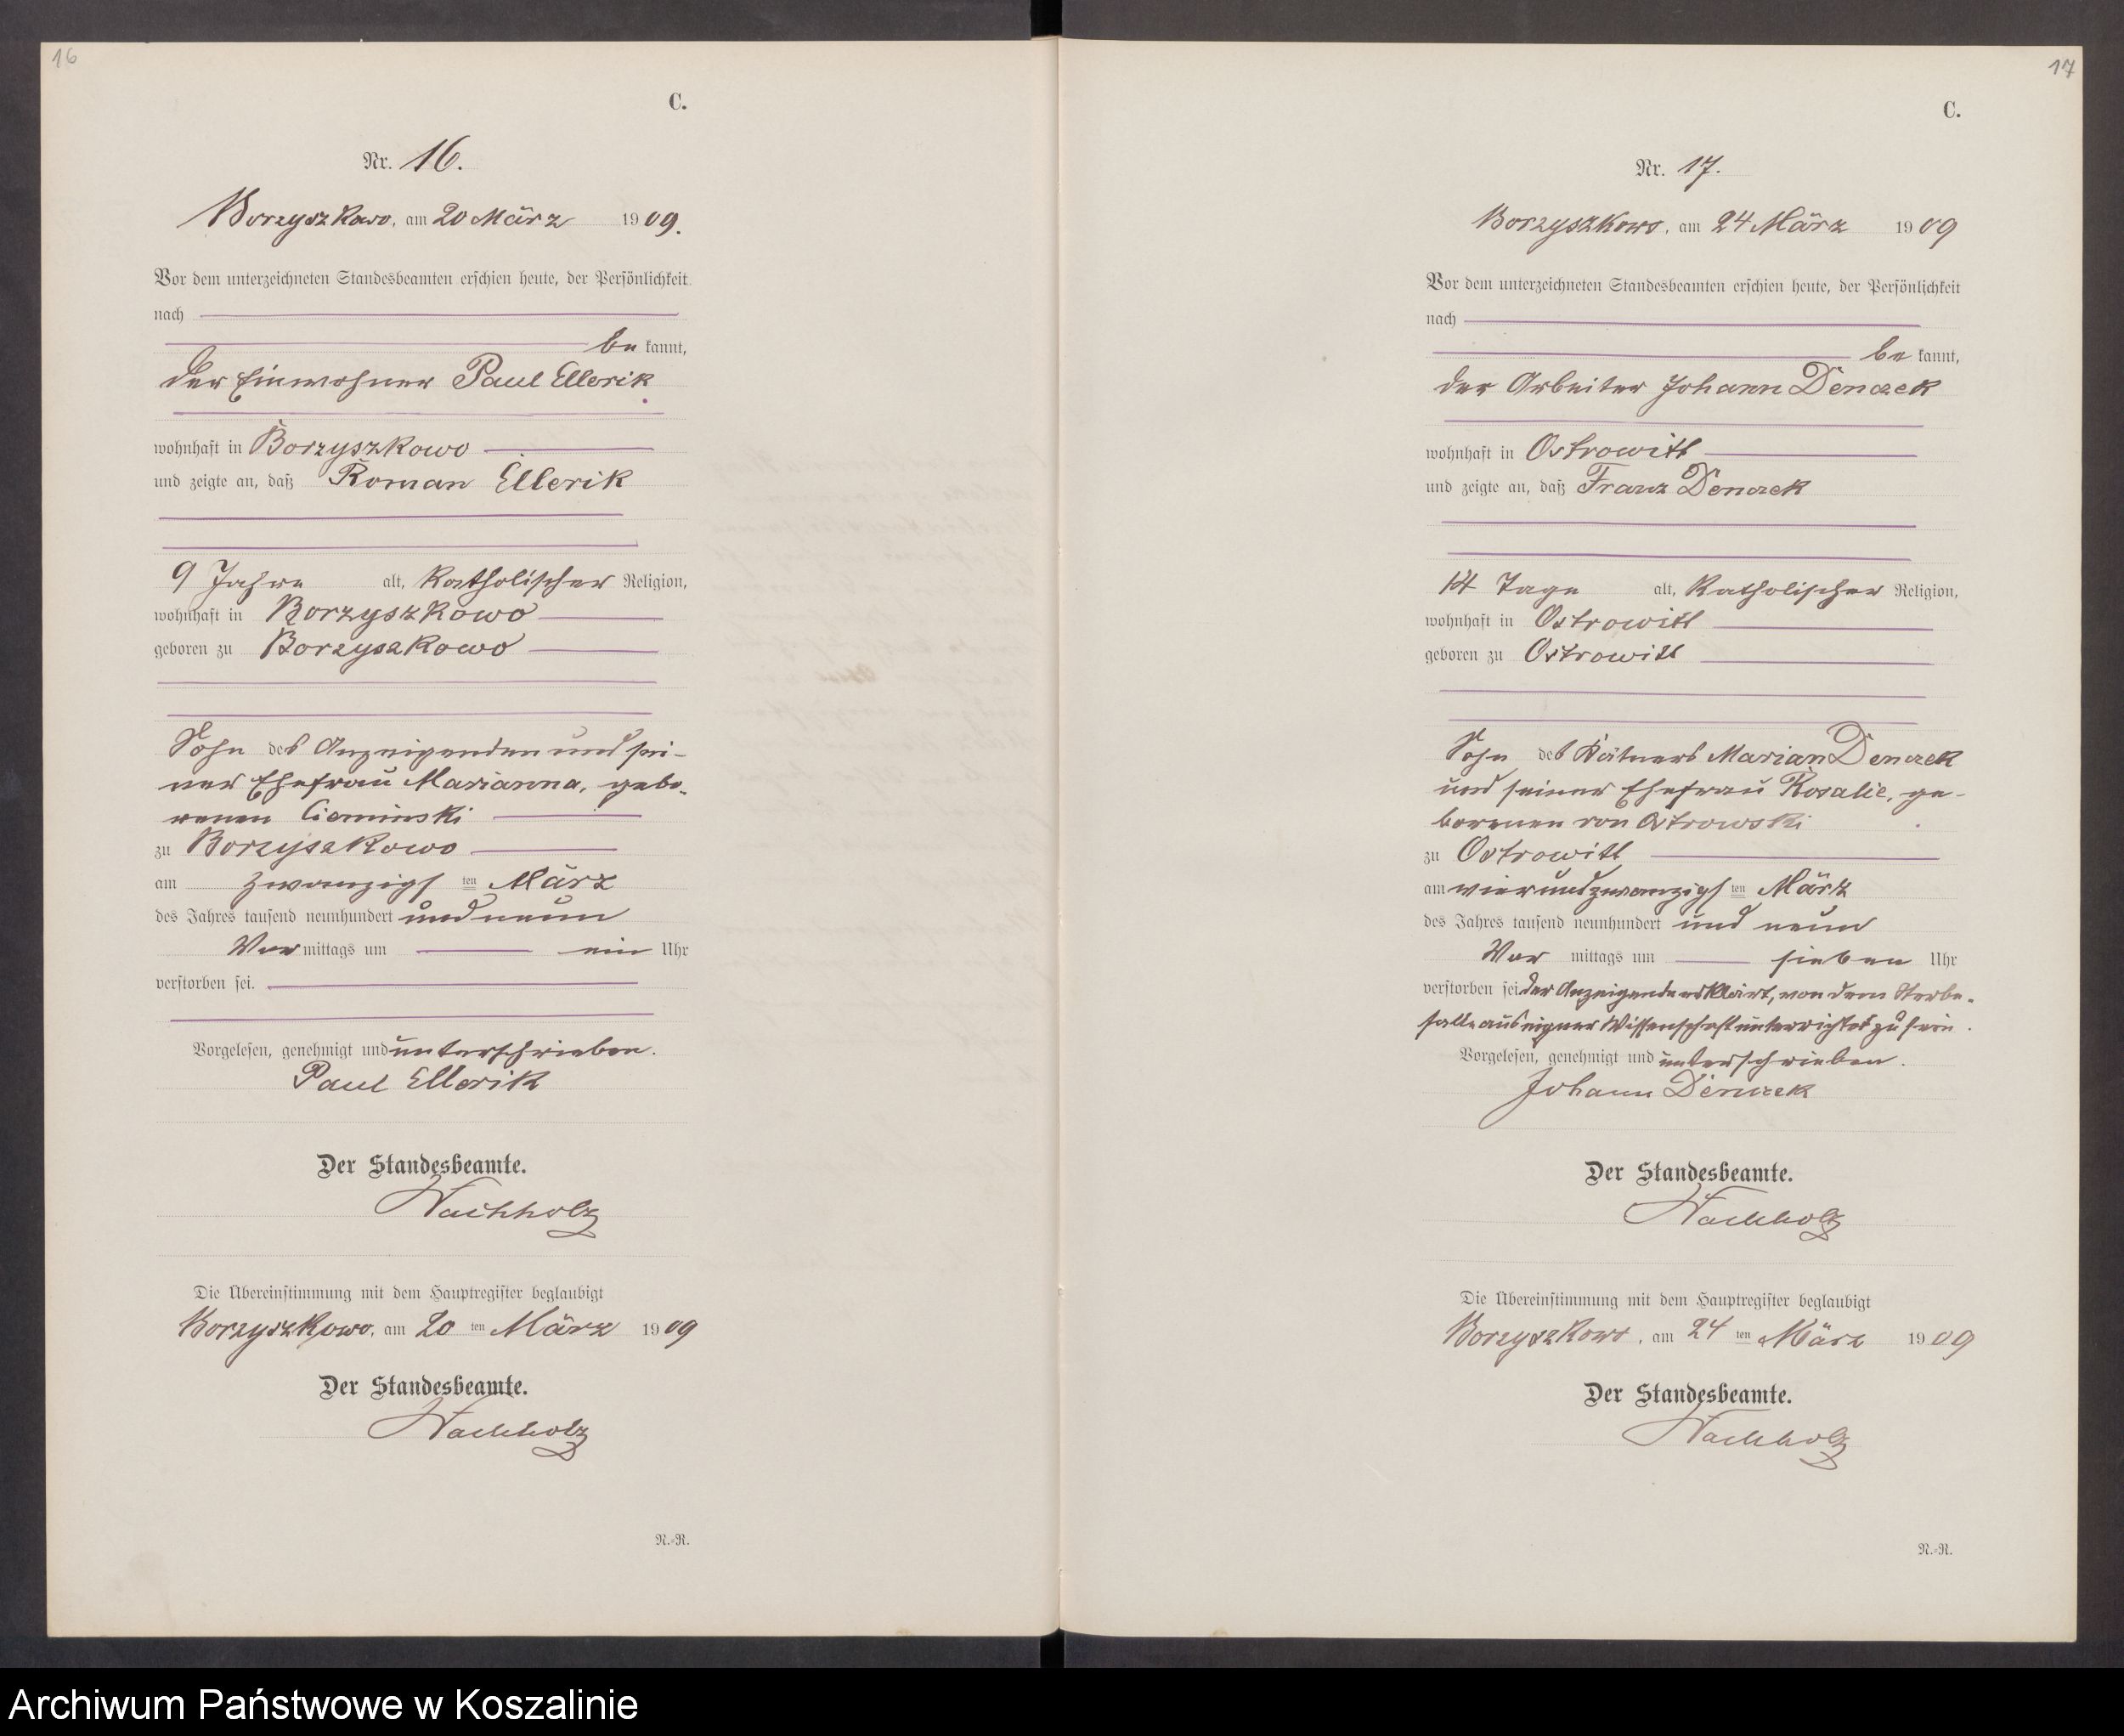 16
C.
Nr. 16.
Borzyszkowo, am 20 März 1909.
Vor dem unterzeichneten Standesbeamten erschien heute, der Persönlichkeit
nach
be kannt,
der Einwohner Paul Ellerik
wohnhaft in Borzyszkowo
und zeigte an, daß Roman Ellerik
9 Jahre alt, katholischer Religion,
wohnhaft in Borzyszkowo
geboren zu Borzyszkowo
Sohn des Anzeigenden und sei-
ner Ehefrau Marianna, gebo-
renen Cieminski
zu Borzyszkowo
am zwanzigs ten März
des Jahres tausend neunhundert und neun
Vor mittags um ein Uhr
verstorben sei.
Vorgelesen, genehmigt und unterschrieben.
Paul Ellerik
Der Standesbeamte.
Wachholz
Die Übereinstimmung mit dem Hauptregister beglaubigt
Borzyszkowo, am 20 ten März 1909
Der Standesbeamte.
Wachholz
N.-R.
17
C.
Nr. 17.
Borzyszkowo, am 24 März 1909
Vor dem unterzeichneten Standesbeamten erschien heute, der Persönlichkeit
nach
be kannt,
der Arbeiter Johann Denczek
wohnhaft in Ostrowitt
und zeigte an, daß Franz Denczek
14 Tage alt, katholischer Religion,
wohnhaft in Ostrowitt
geboren zu Ostrowitt
Sohn des Kätners Marian Denczek
und seiner Ehefrau Rosalie, ge-
borenen von Ostrowski
zu Ostrowitt
am vierundzwanzigs ten März
des Jahres tausend neunhundert und neun
Vor mittags um sieben Uhr
verstorben sei der Anzeigende erklärt, von dem Sterbe-
falle aus eigner Wissenschaft unterrichtet zu sein.
Vorgelesen, genehmigt und unterschrieben.
Johann Denczek
Der Standesbeamte.
Wachholz
Die Übereinstimmung mit dem Hauptregister beglaubigt
Borzyszkowo, am 24 ten März 1909
Der Standesbeamte.
Wachholz
N.-R.
Archiwum Państwowe w Koszalinie